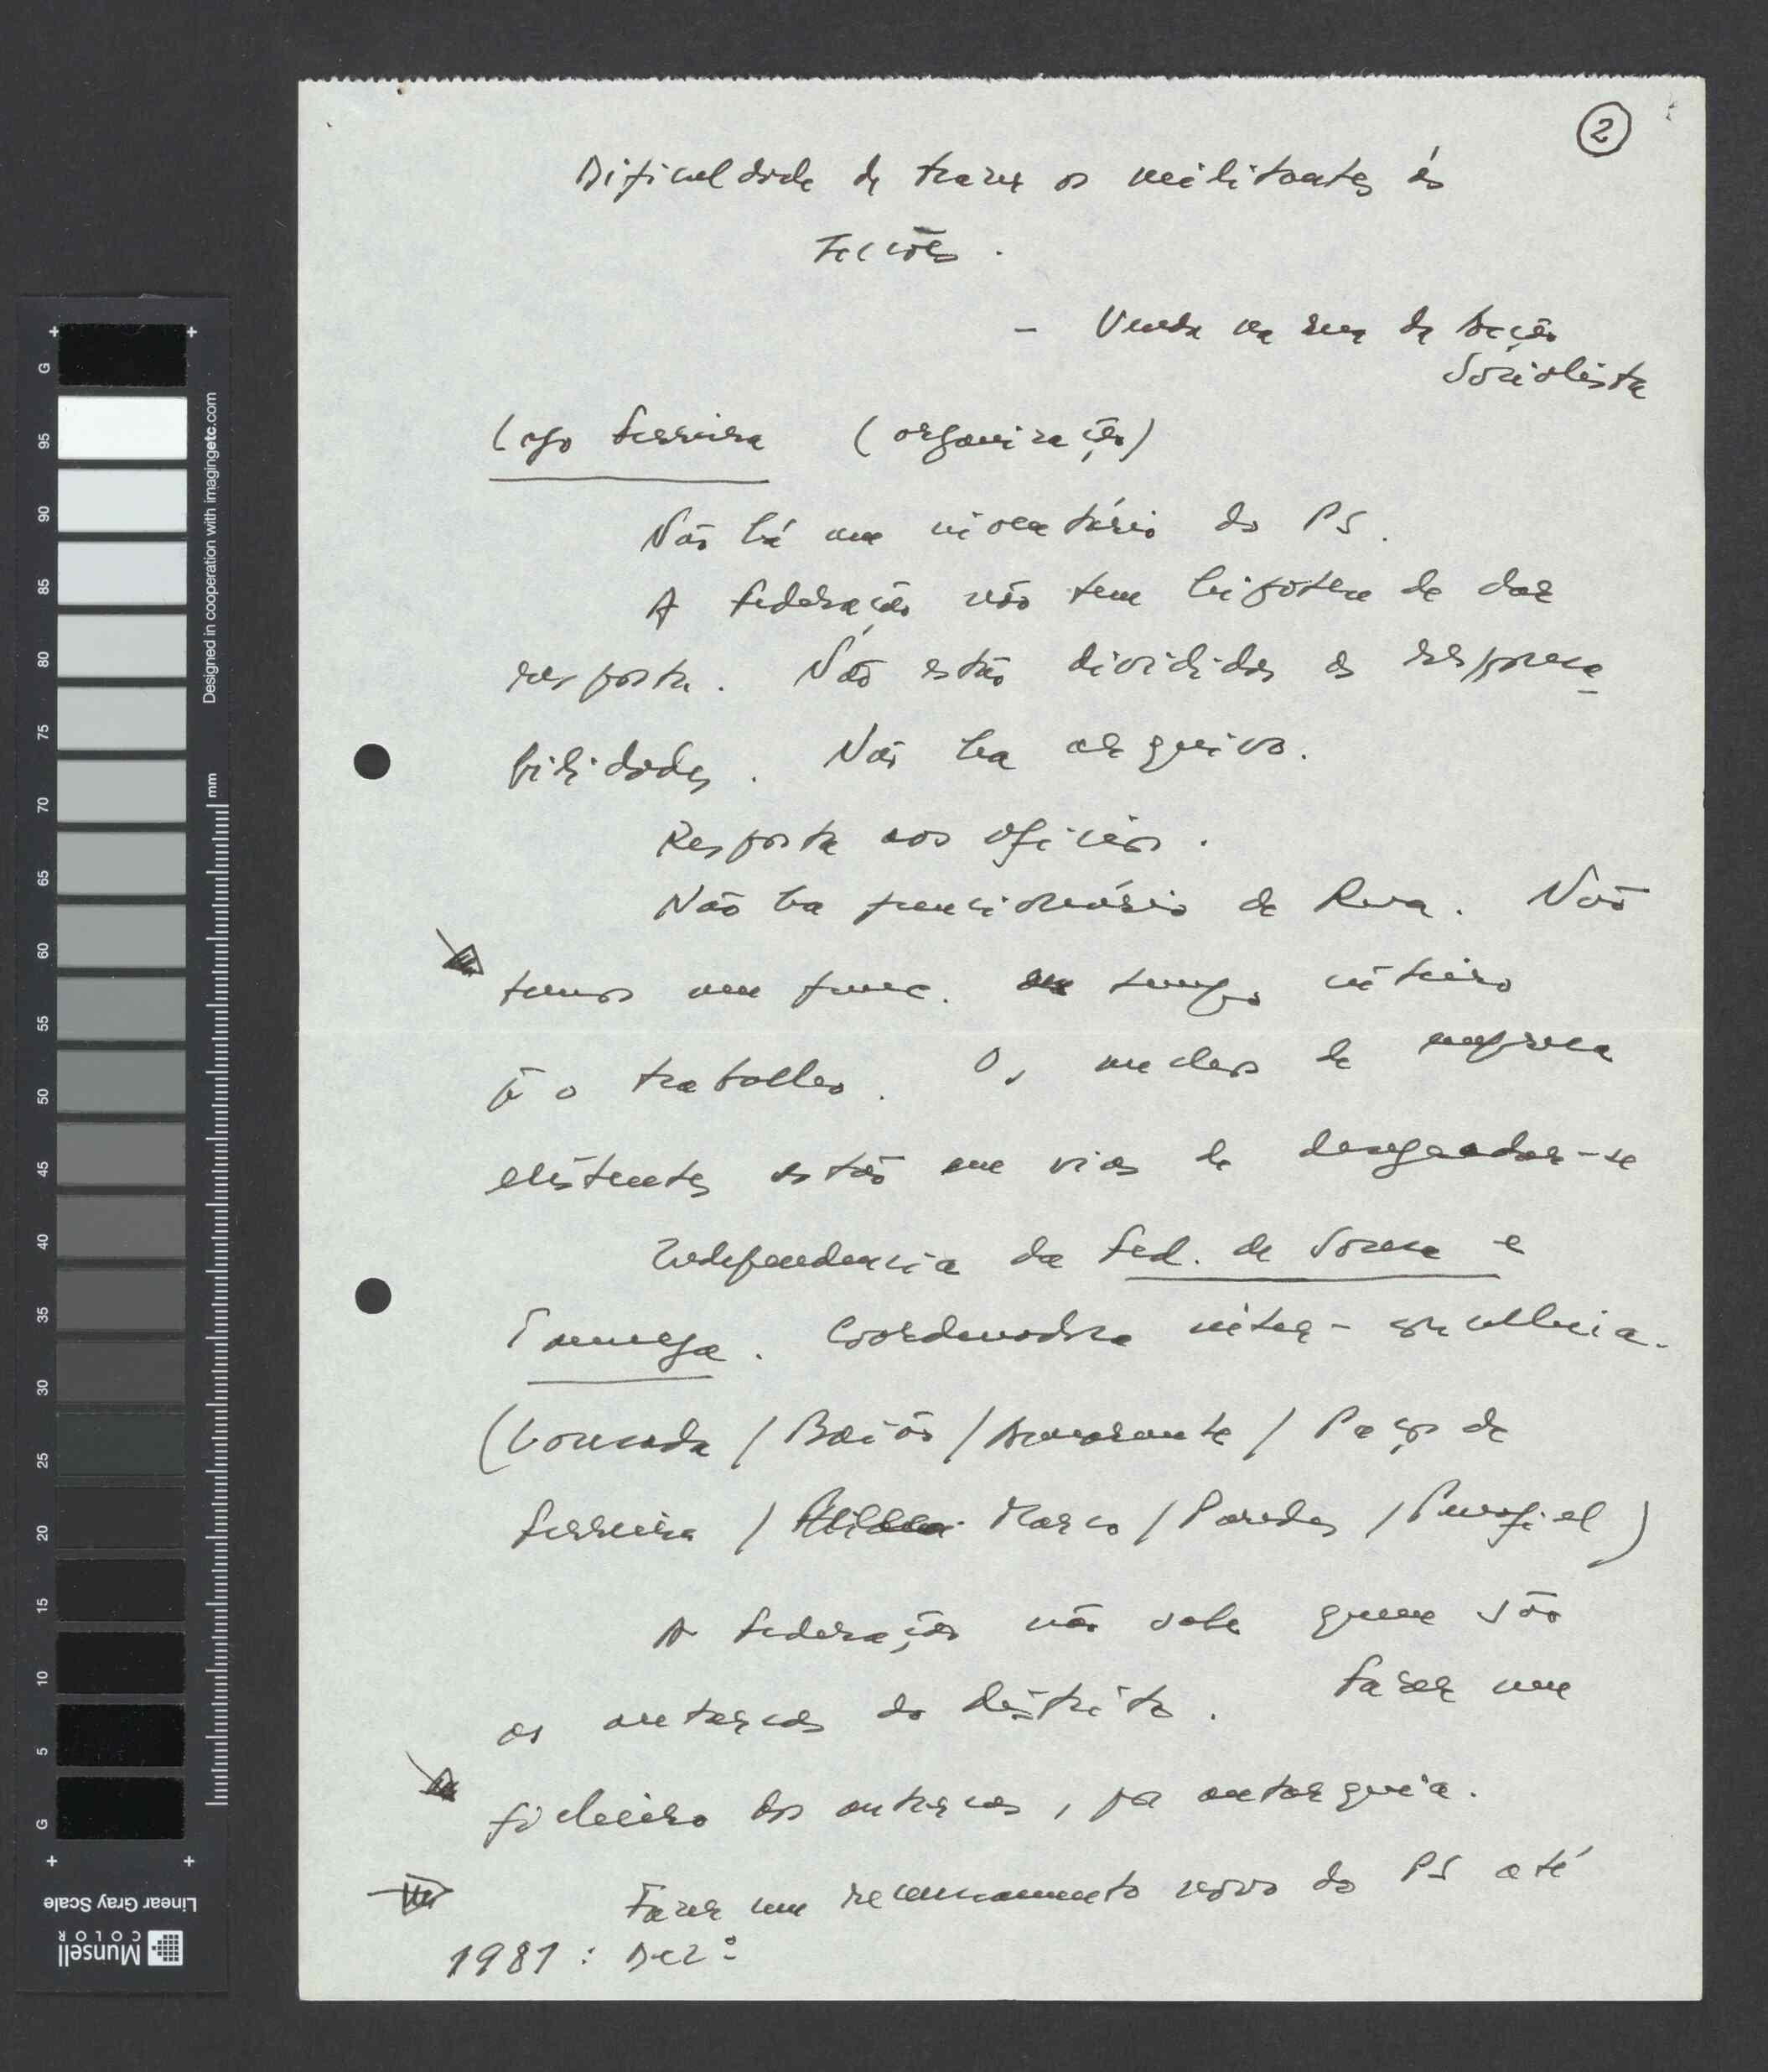 2
Dificuldade de trazer os militantes ás
secções.
- Venda na rua da Acção
Socialista
Cajo Ferreira (organização)
Não há um inventário do PS.
A Federação não tem hipótese de dar
resposta. Não estão divididas as responsa
bilidades. Não ha arquivo.
Resposta aos oficios.
Não ha funcionário de Rua. Não
temos um func. tempo inteiro
p o trabalho. Os nucleos de empresa
existentes estão em vias de desagradar-se
Independencia da Fed. de Sousa e
Tamega. Coordenadora inter-concelhia.
(Lousada / Baião / Amarante / Paços de
Ferreira / Marco / Paredes / Penafiel)
A Federação não sabe quem são
os autarcas do distrito. Fazer um
ficheiro dos autarcas, por autarquia.
Fazer um recenseamento novo do PS até
1981: Dezº
G 95 90 85 80 75 70 65 60 55 50 45 40 35 30 25 20 15 10 5 G
Designed in cooperation with imagingetc.com
mm
Linear Gray Scale
Munsell
COLOR